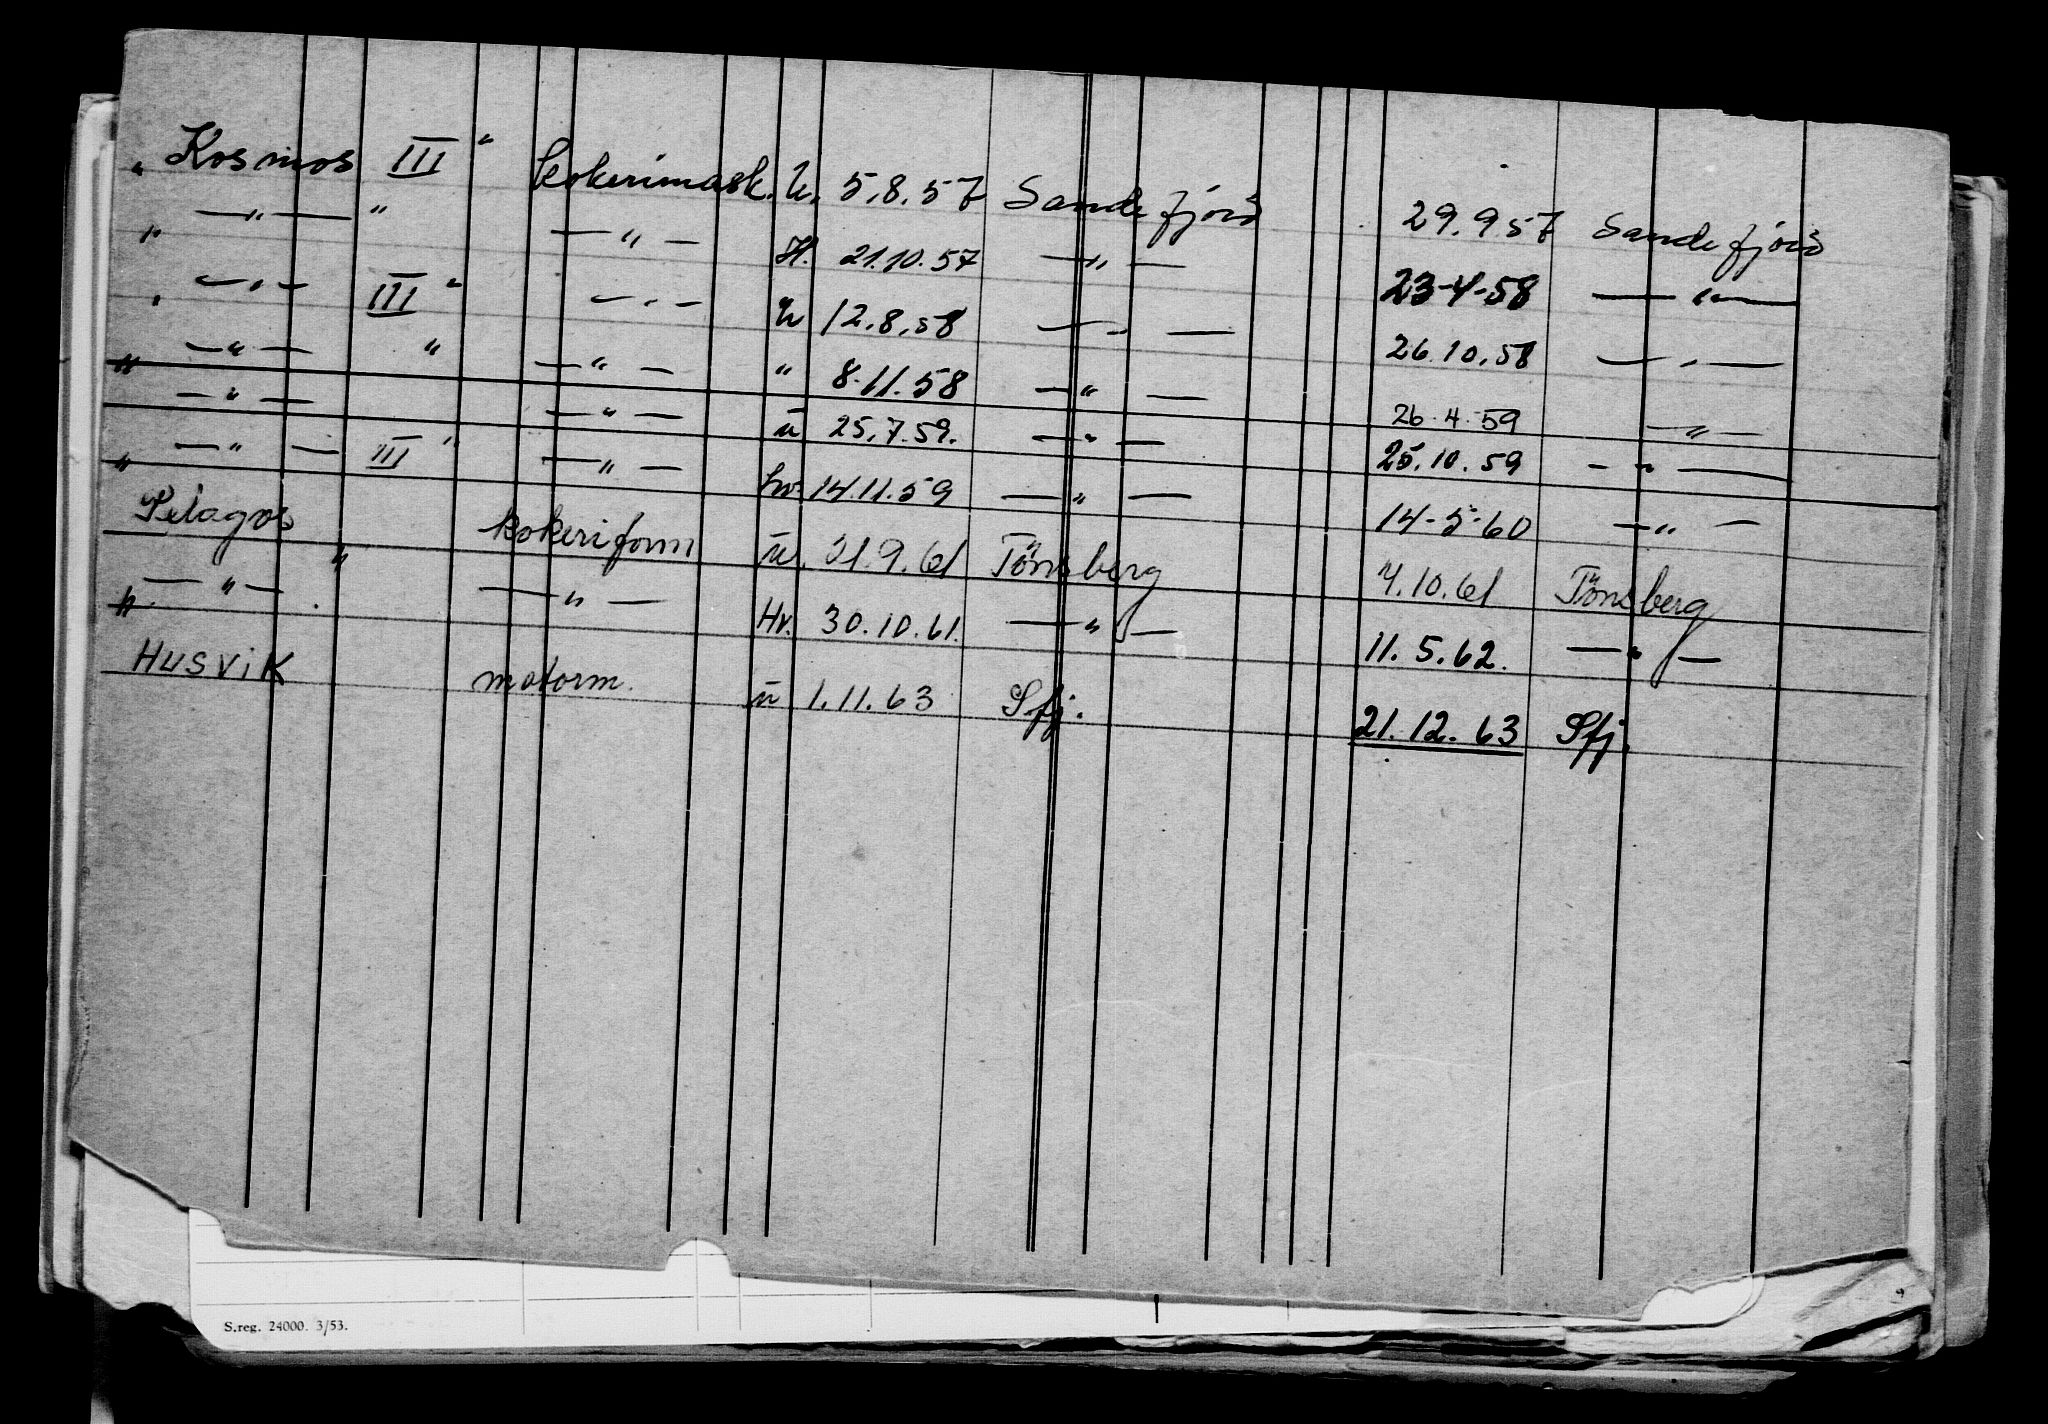 " Kosmos III " kokerimask. U. 5.8.57 Sandefjord 29.9 57 Sandefjord
" — " — " — " — H. 21.10.57 — " — 23-4-58 — " —
" — " — III " — " — U 12.8.58 — " — 26.10.58 — " —
" — " — " — " — " 8.11.58 — " — 26.4.59 — " —
— " — — " — u 25.7.59. — " — 25.10.59 — " —
" — " — III " — " — hv. 14.11.59 — " — 14-5-60 — " —
Pelagos " kokeriform u. 21.9.61 Tönsberg 7.10.61 Tönsberg
" — " — . — " — Hv. 30.10.61. — " — 11.5.62. — " —
HUSVIK motorm. u 1.11.63 Sfj. 21.12.63 Sfj.
S.reg. 24000. 3/53.